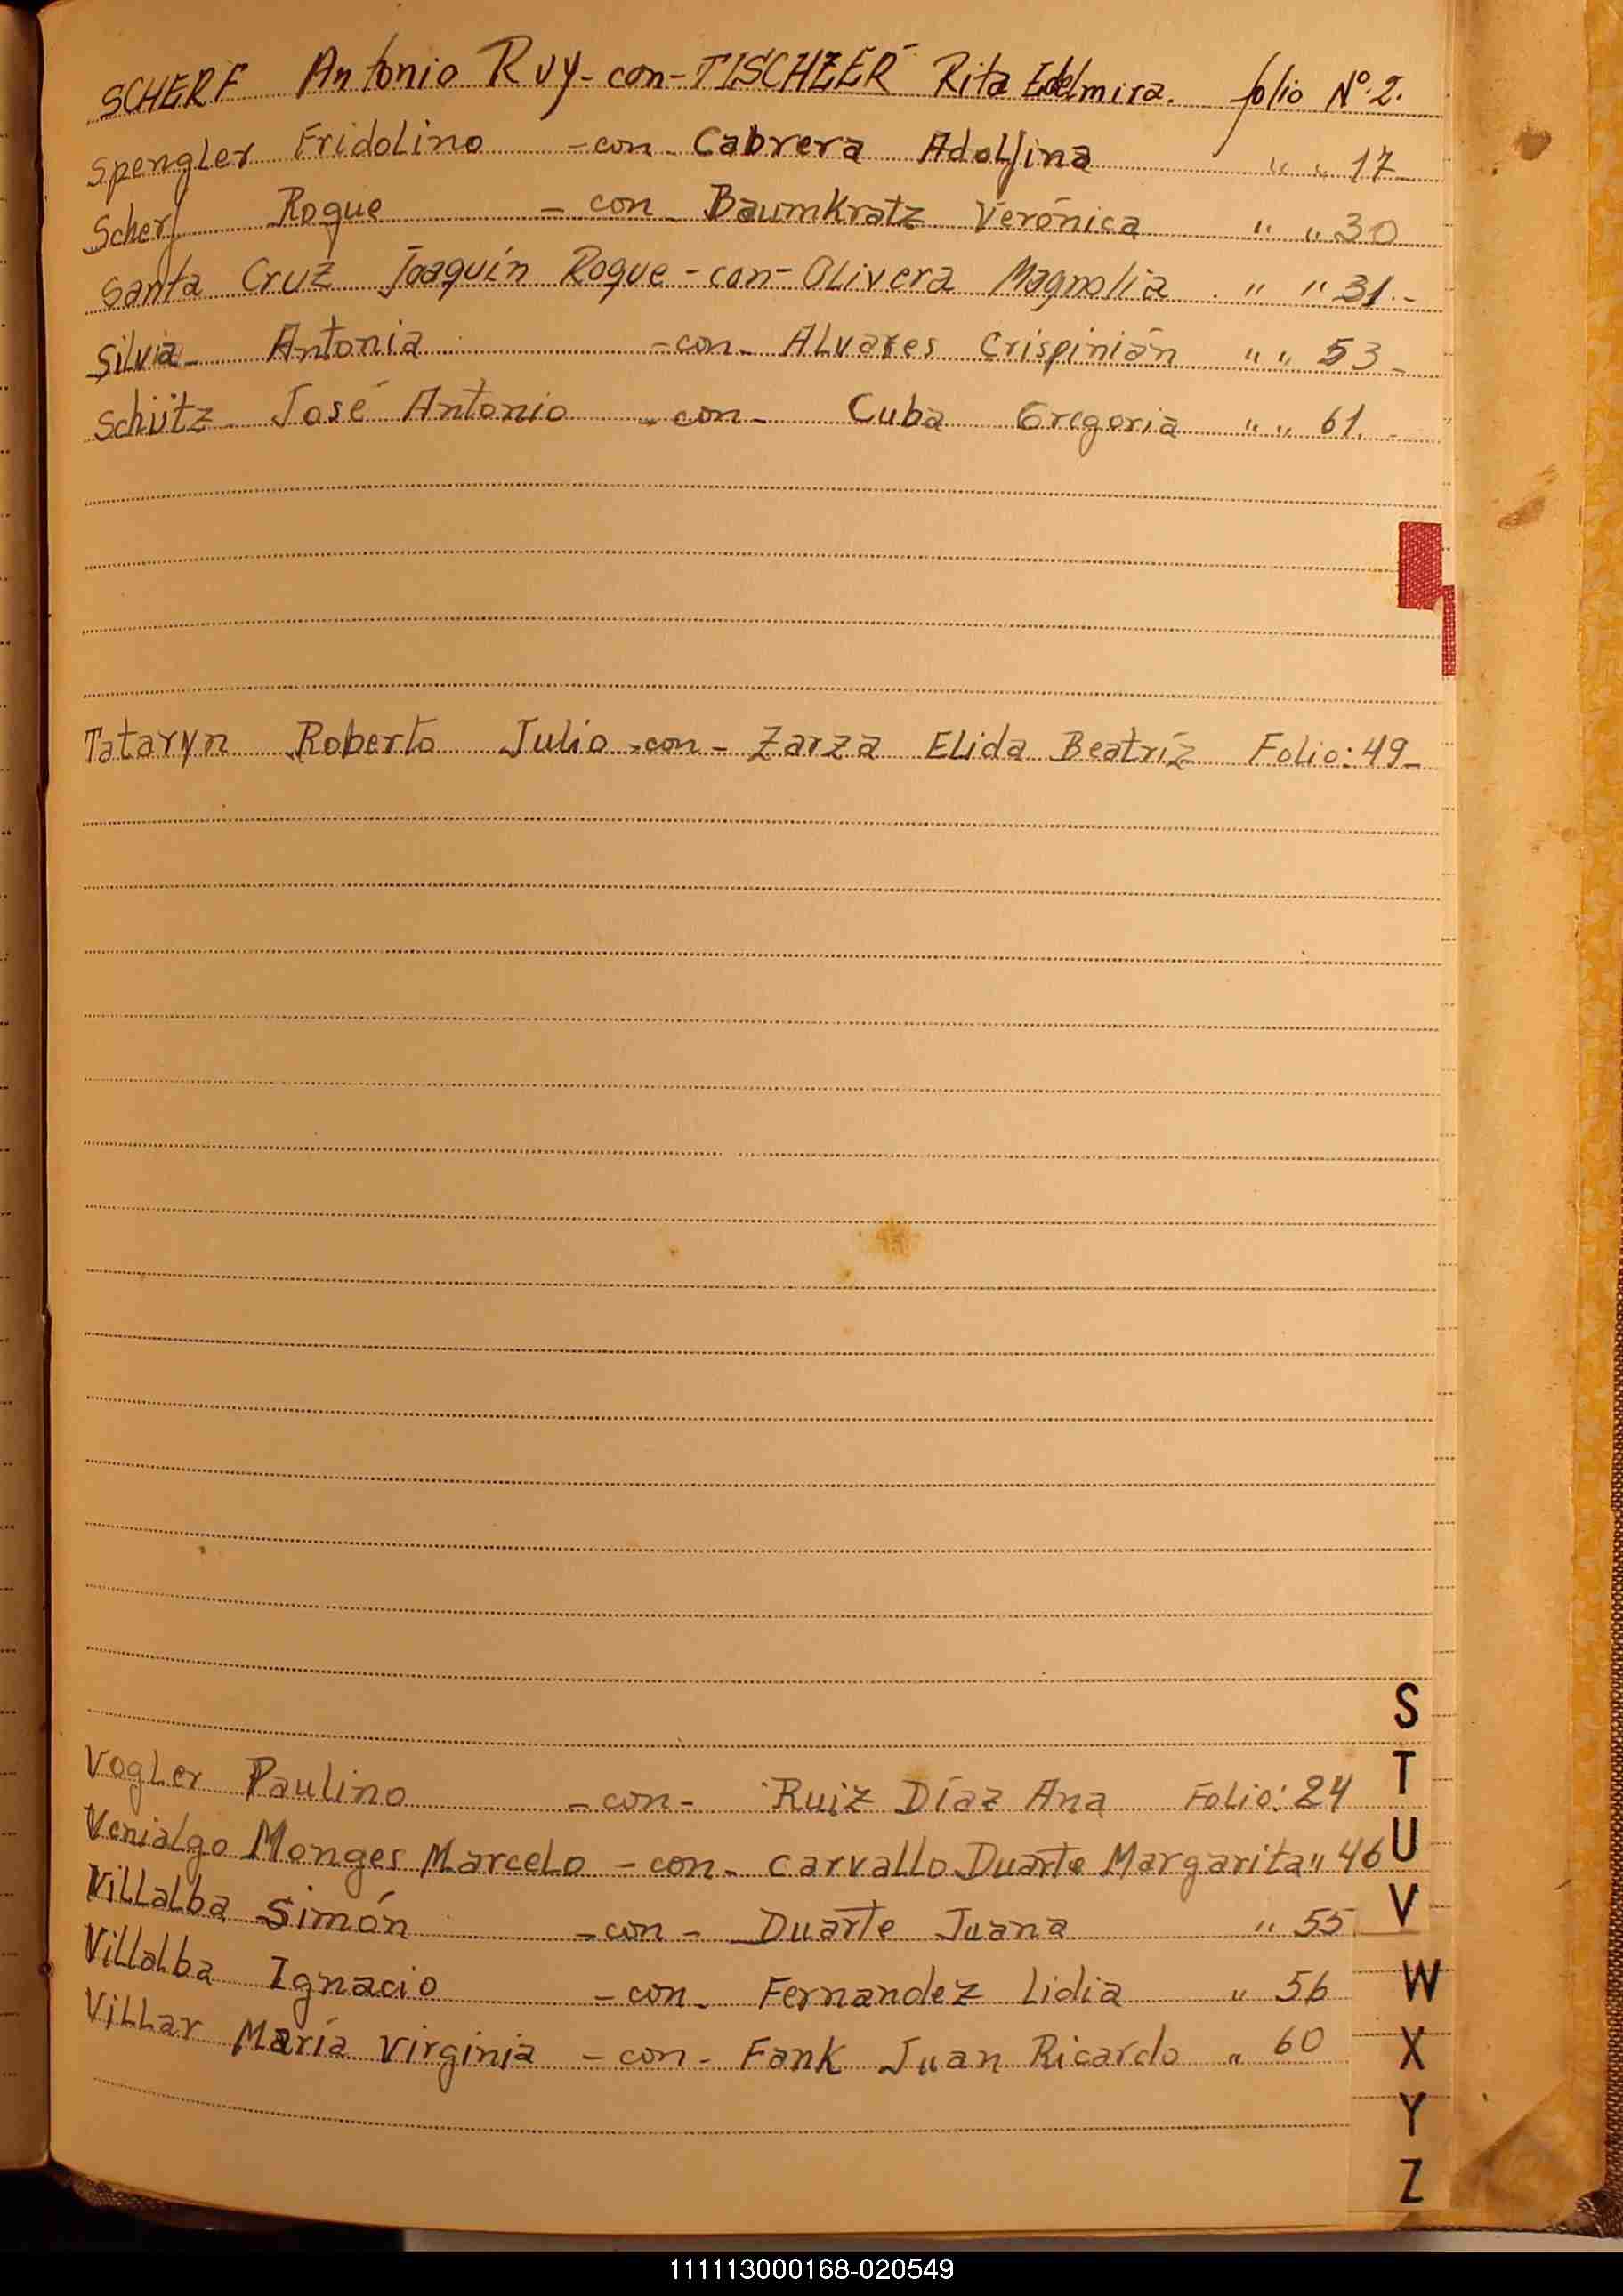 SCHERF Antonio Ruy - con - TISCHLER Rita Edelmira. folio Nº. 2.
Spengler Fridolino - con - Cabrera Adolfina " " 17 -
Scherf Roque - con - Baumkratz Verónica " " 30
Santa Cruz Joaquín Roque - con - Olivera Magnolia . " " 31. -
Silvia - Antonia - con - Alvares Crispinián " " 53 -
Schütz José Antonio - con - Cuba Gregoria " " 61. -
Tataryn Roberto Julio - con - Zarza Elida Beatríz Folio: 49 -
Vogler Paulino - con - Ruiz Díaz Ana Folio: 24
Venialgo Monges Marcelo - con - Carvallo Duarte Margarita " 46
Villalba Simón - con - Duarte Juana " 55
Villalba Ignacio - con - Fernandez Lidia " 56
Villar María Virginia - con - Fank Juan Ricardo " 60
S
T
U
V
W
X
Y
Z
111113000168-020549